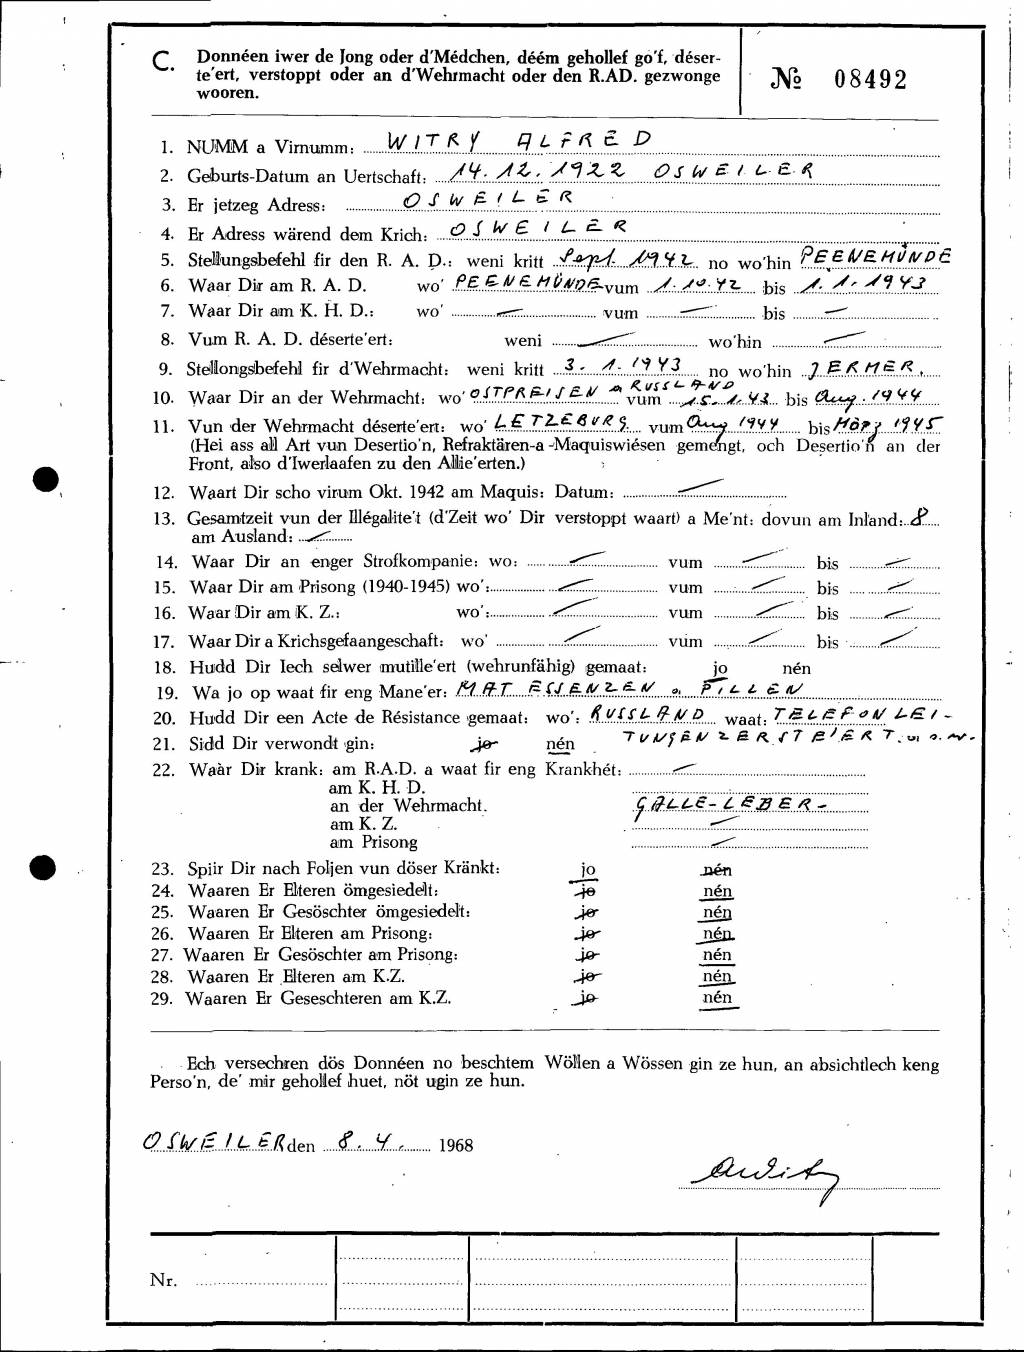 C. Donnéen iwer de Jong oder d'Médchen, déém gehollef go'f, déser-
te'ert, verstoppt oder an d'Wehrmacht oder den R.AD. gezwonge
wooren.
№ 08492
1. NUMM a Virnumm: WITRY ALFRED
2. Geburts-Datum an Uertschaft: 14.12.1922 OSWEILER
3. Er jetzeg Adress: OSWEILER
4. Er Adress wärend dem Krich: OSWEILER
5. Stellungsbefehl fir den R. A. D.: weni kritt Sept. 1942 no wo'hin PEENEMÜNDE
6. Waar Dir am R. A. D. wo' PEENEMÜNDE vum 1.10.42 bis 1.1.1943
7. Waar Dir am K. H. D.: wo' — vum — bis —
8. Vum R. A. D. déserte'ert: weni — wo'hin —
9. Stellongsbefehl fir d'Wehrmacht: weni kritt 3.1.1943 no wo'hin JERMER.
10. Waar Dir an der Wehrmacht: wo' OSTPREISEN a RUSSLAND vum 15.1.43 bis Aug. 1944
11. Vun der Wehrmacht déserte'ert: wo' LETZEBURG vum Aug 1944 bis März 1945
(Hei ass all Art vun Desertio'n, Refraktären-a-Maquiswiésen gemengt, och Desertio'n an der
Front, also d'Iwerlaafen zu den Allie'erten.)
12. Waart Dir scho virum Okt. 1942 am Maquis: Datum: —
13. Gesamtzeit vun der Illégalite't (d'Zeit wo' Dir verstoppt waart) a Me'nt: dovun am Inland: 8
am Ausland: —
14. Waar Dir an enger Strofkompanie: wo: — vum — bis —
15. Waar Dir am Prisong (1940-1945) wo': — vum — bis —
16. Waar Dir am K. Z.: wo': — vum — bis —
17. Waar Dir a Krichsgefaangeschaft: wo' — vum — bis —
18. Hudd Dir Iech selwer mutille'ert (wehrunfähig) gemaat: jo nén
19. Wa jo op waat fir eng Mane'er: MAT ESSENZEN a PILLEN
20. Hudd Dir een Acte de Résistance gemaat: wo': RUSSLAND waat: TELEFONLEI-
21. Sidd Dir verwondt gin: jo nén TUNGEN ZERSTEIERT. u. s. w.
22. Waar Dir krank: am R.A.D. a waat fir eng Krankhét: —
am K. H. D.
an der Wehrmacht. GALLE-LEBER-
am K. Z. —
am Prisong —
23. Spiir Dir nach Foljen vun döser Kränkt: jo nén
24. Waaren Er Elteren ömgesiedelt: jo nén
25. Waaren Er Gesöschter ömgesiedelt: jo nén
26. Waaren Er Elteren am Prisong: jo nén
27. Waaren Er Gesöschter am Prisong: jo nén
28. Waaren Er Elteren am K.Z. jo nén
29. Waaren Er Geseschteren am K.Z. jo nén
Ech versechren dös Donnéen no beschtem Wöllen a Wössen gin ze hun, an absichtlech keng
Perso'n, de' mir gehollef huet, nöt ugin ze hun.
OSWEILER den 8.4. 1968
AWitry
Nr.